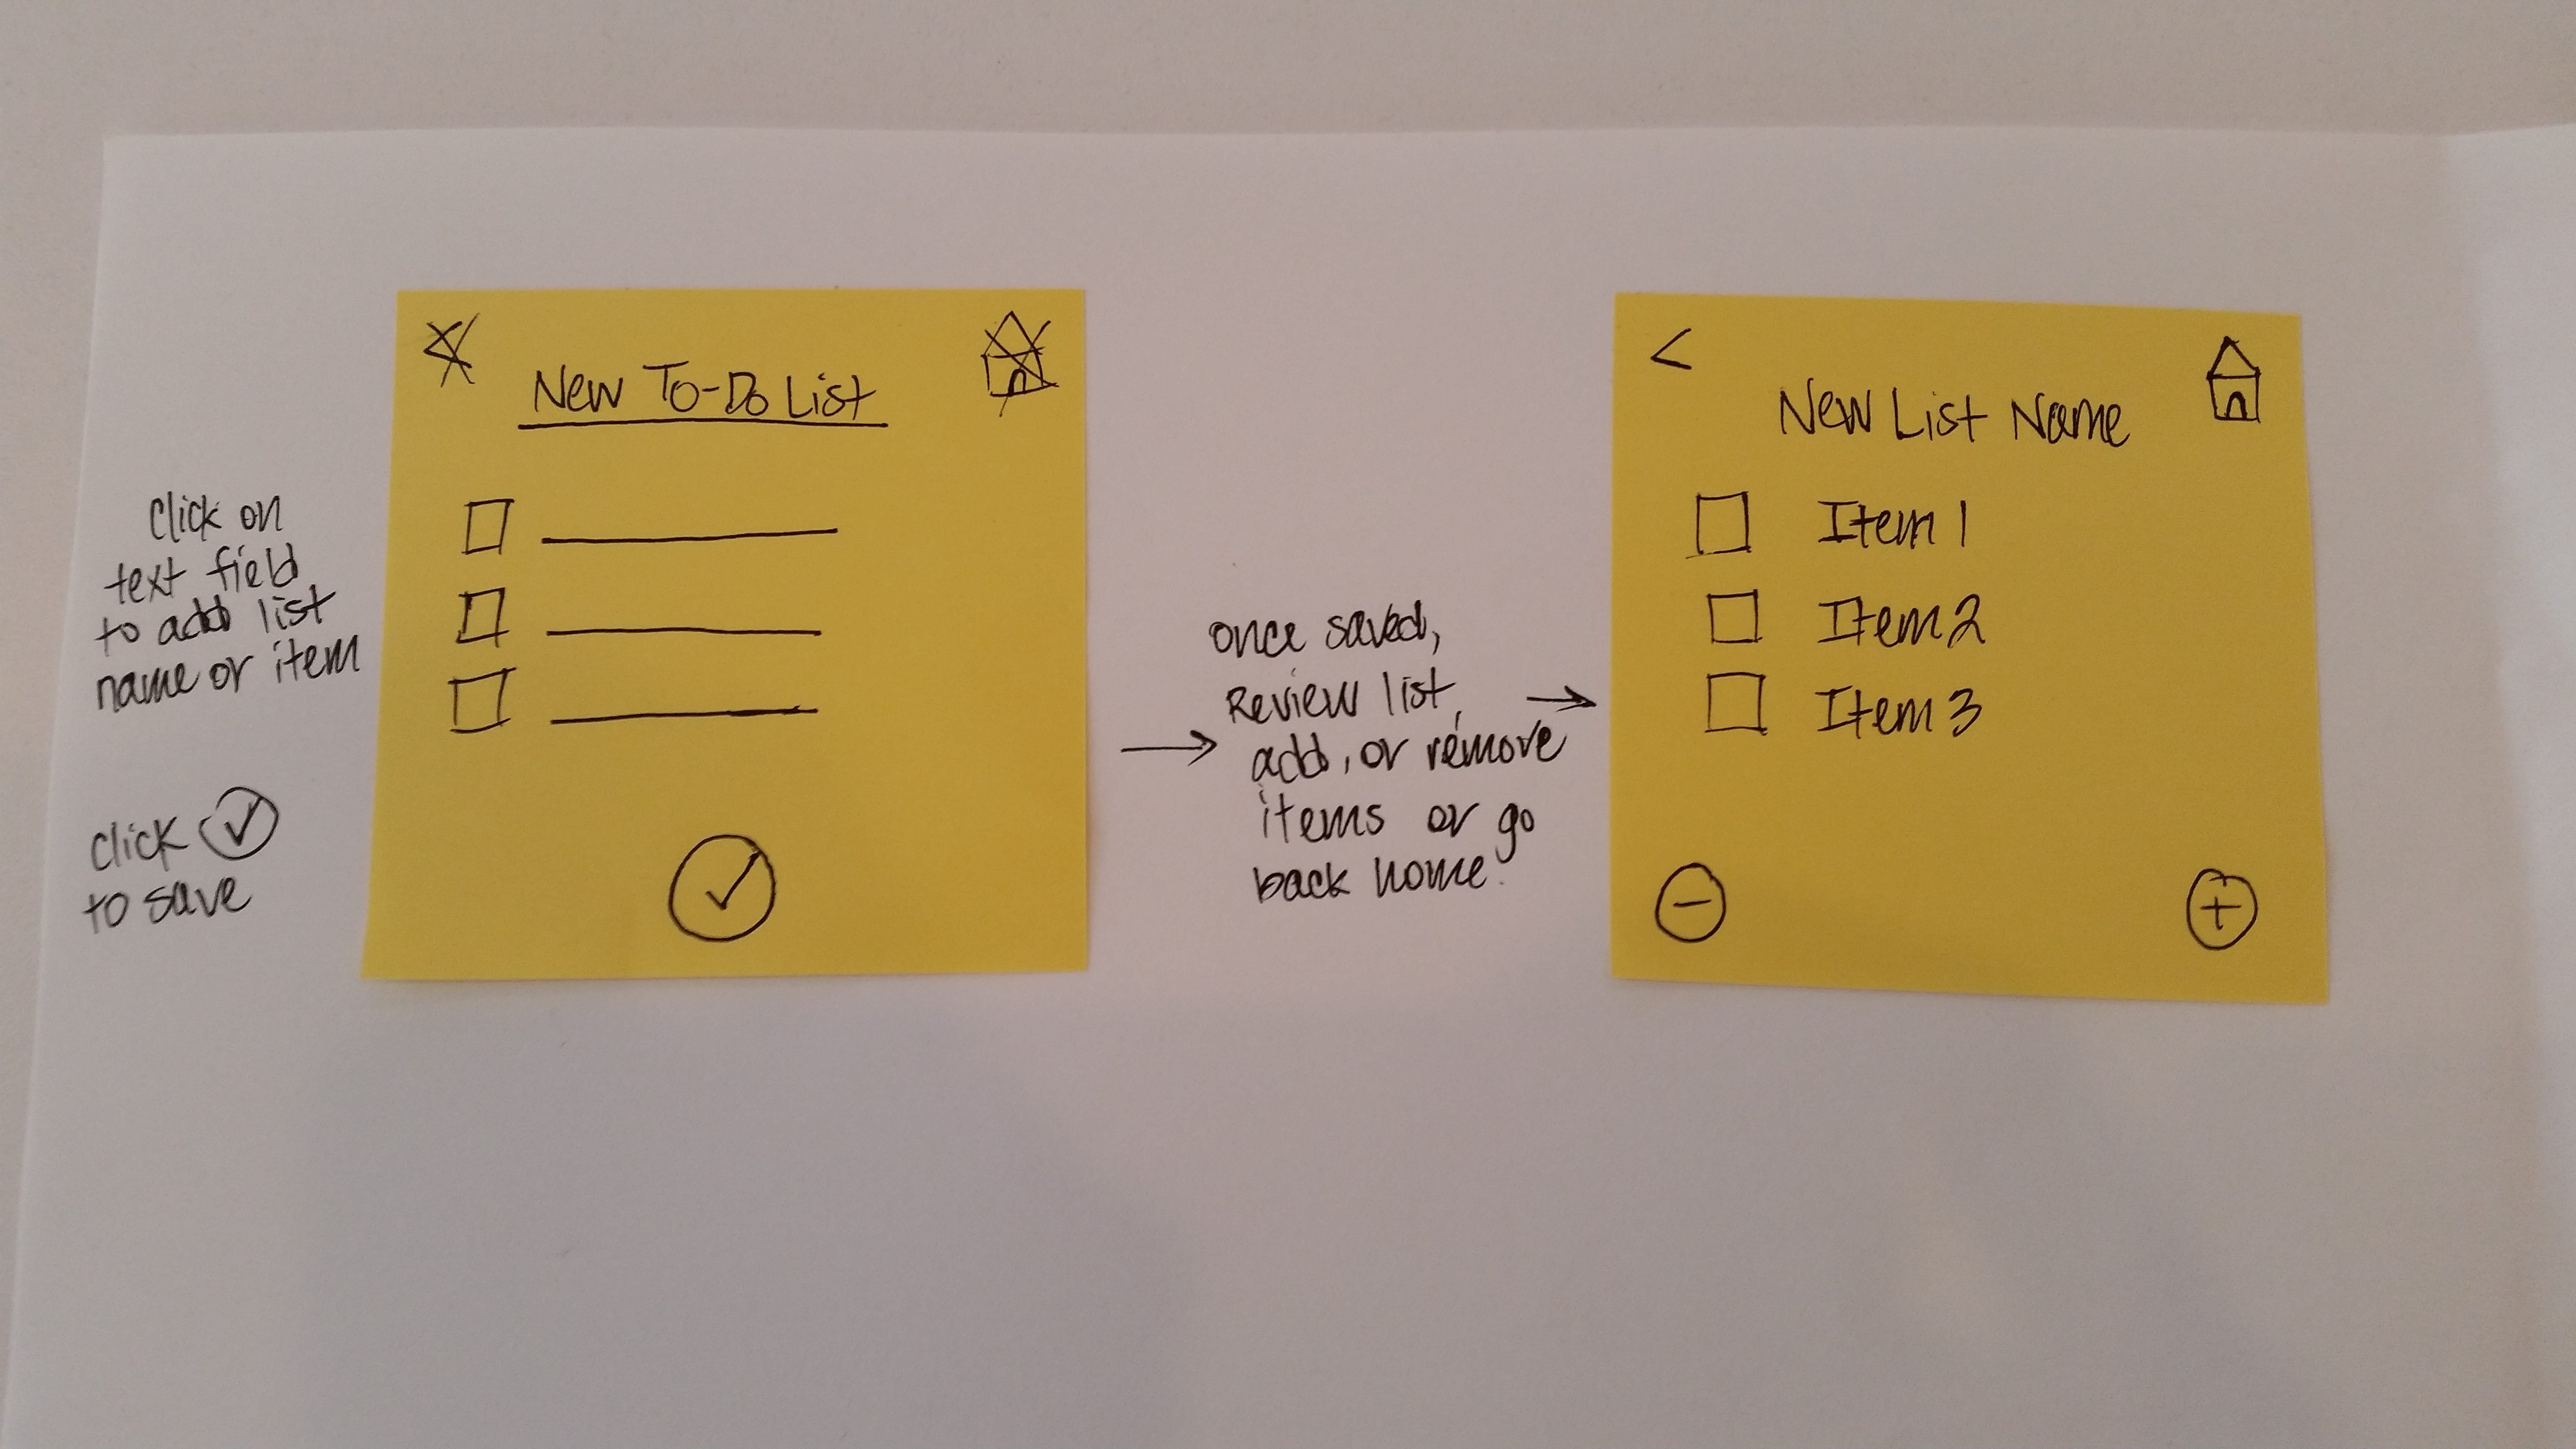 Click on
text field
to add list
name or item
click ✓
to save
<
New To-Do List
✓
once saved,
Review list,
add, or remove
items or go
back home.
<
New List Name
Item 1
Item 2
Item 3
−
+